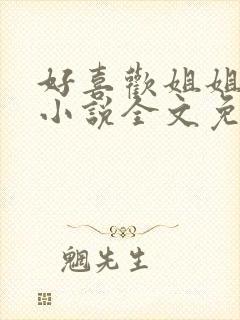 好喜歡姐姐
小說全文免
魍先生